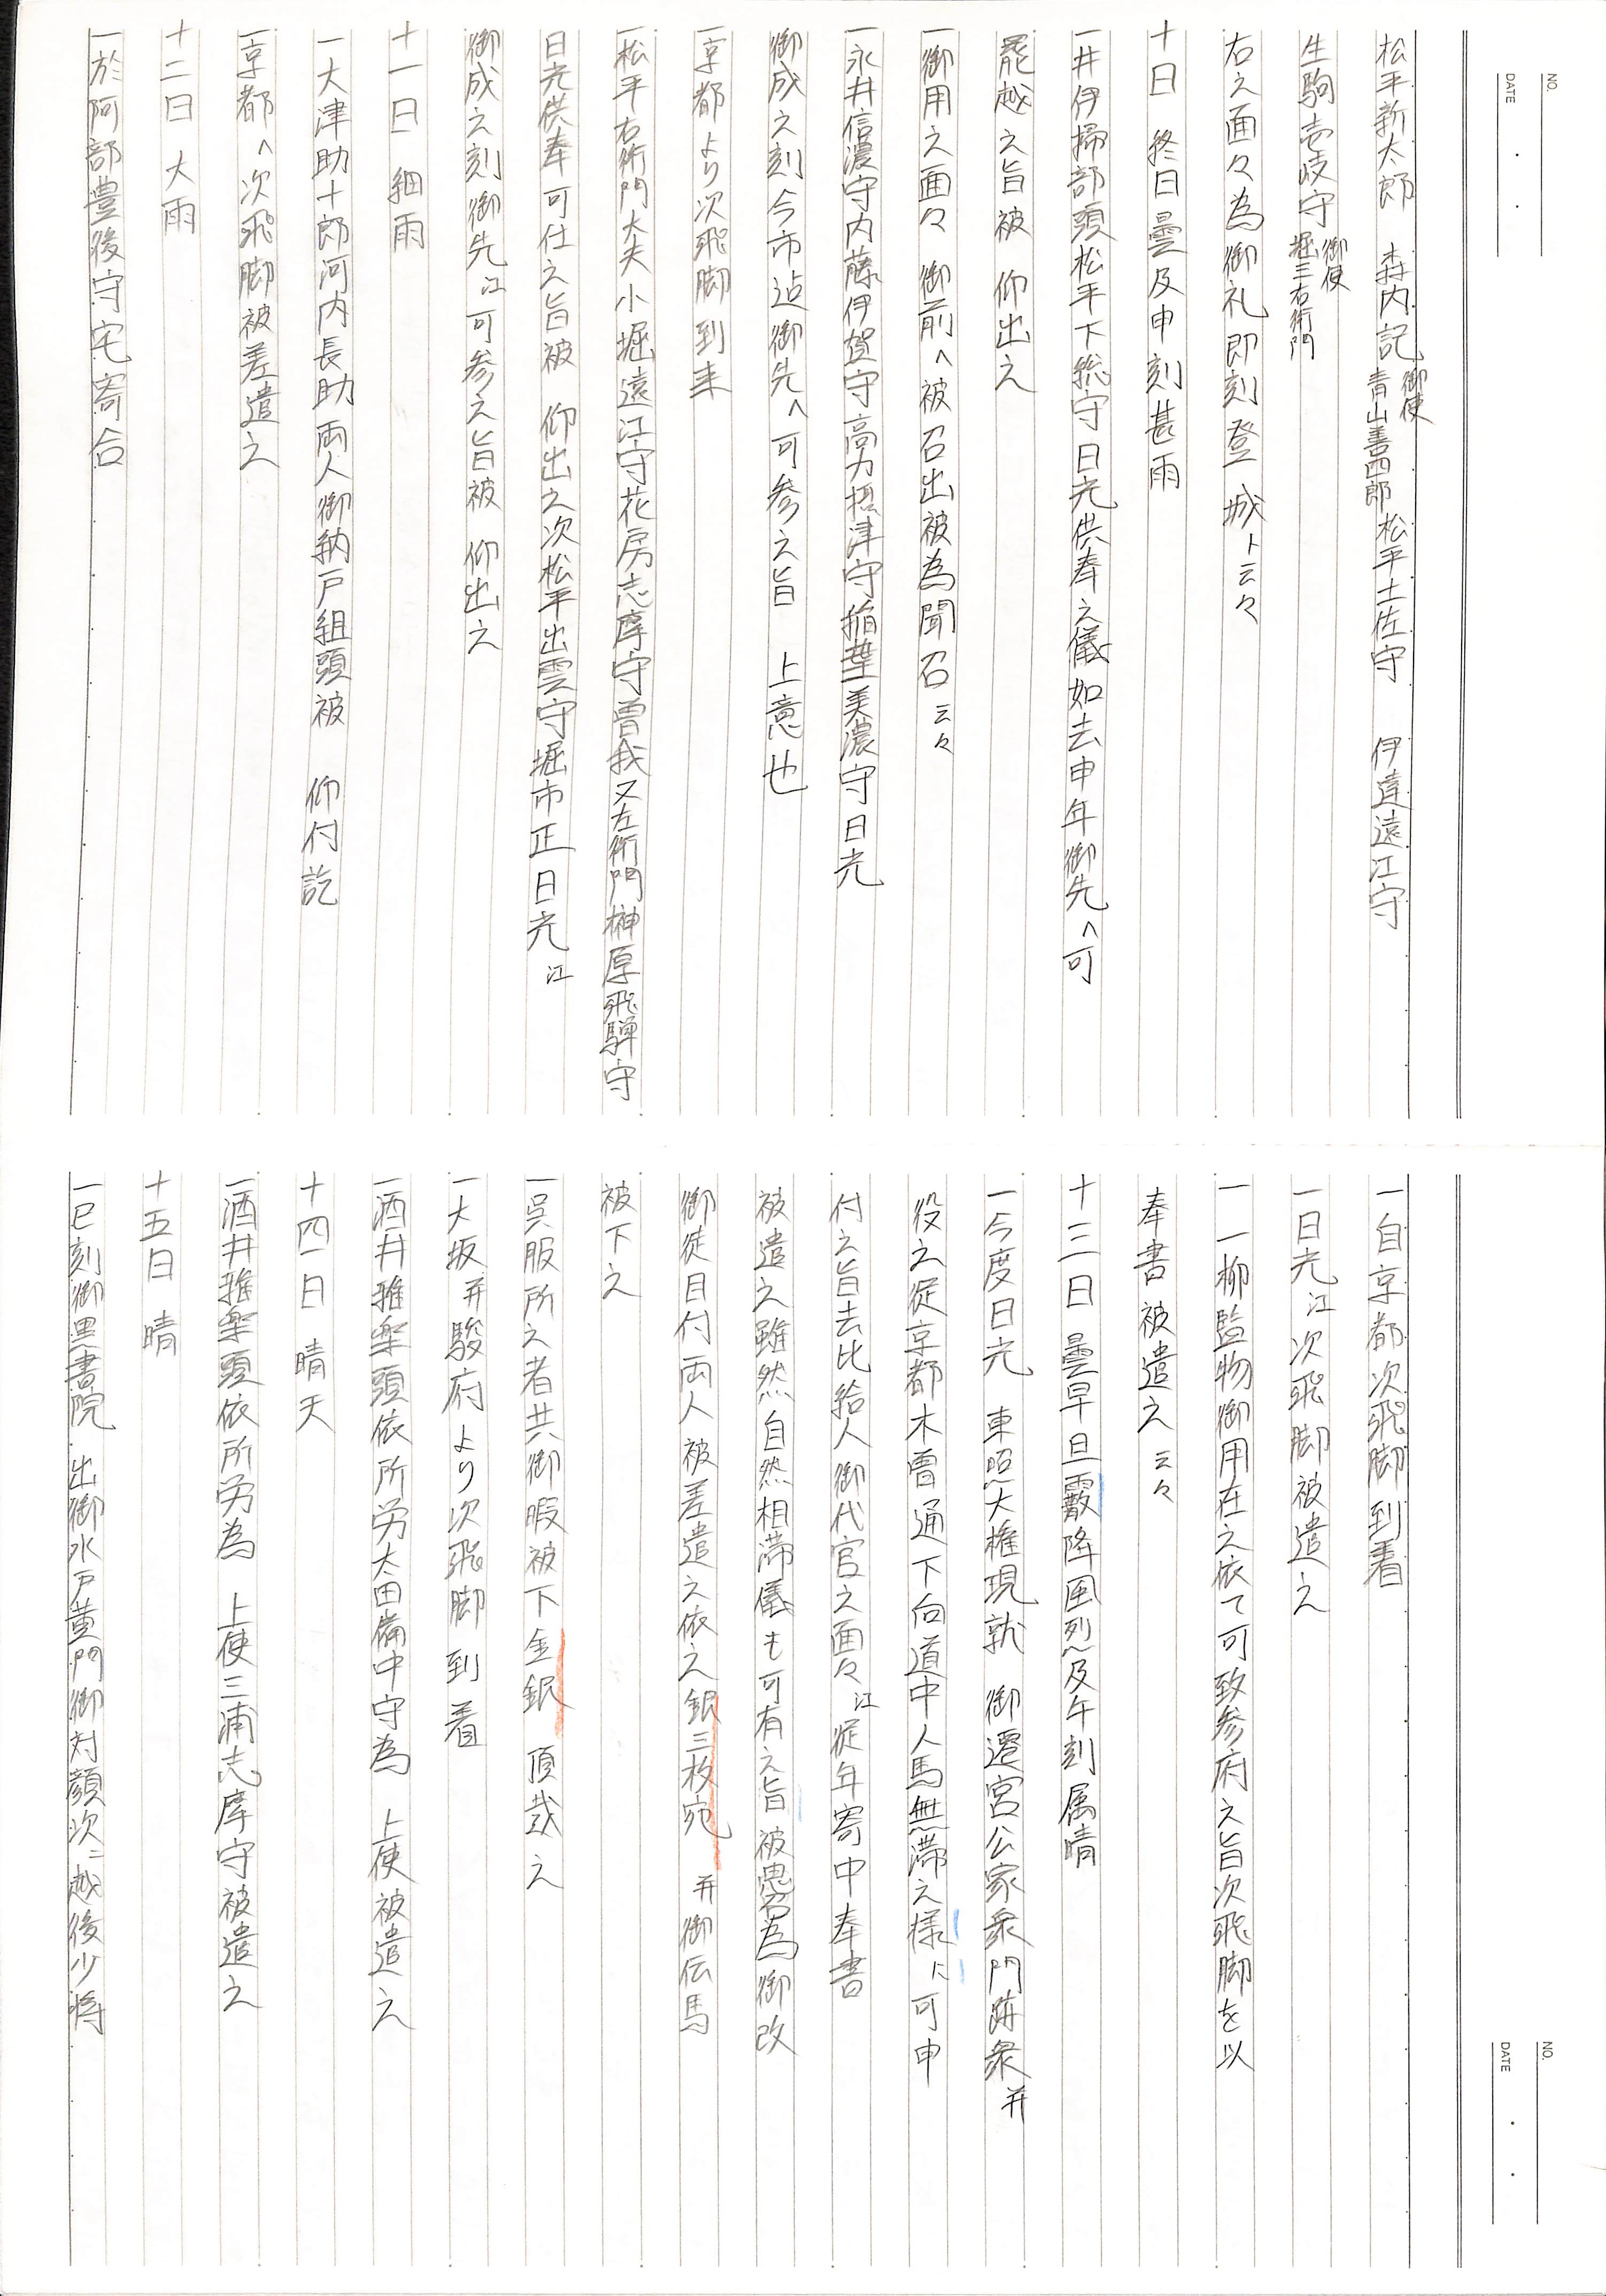 NO.
DATE
松平新太郎 森内記 御使 青山善四郎 松平土佐守 伊達遠江守
生駒壱岐守 御使 堀三右衛門
右之面々為御礼即刻登 城ト云々
十日 終日曇及申刻甚雨
一井伊掃部頭松平下総守日光供奉之儀如去申年御先へ可
罷越之旨被 仰出之
一御用之面々 御前へ被召出被為聞召云々
一永井信濃守内藤伊賀守高力摂津守稲葉美濃守日光
御成之刻今市迠御先へ可参之旨 上意也
一京都より次飛脚到来
一松平右衛門大夫小堀遠江守花房志摩守曽我又左衛門榊原飛騨守
日光供奉可仕之旨被 仰出之次松平出雲守堀市正日光江
御成之刻御先江可参之旨被 仰出之
十一日 細雨
一大津助十郎河内長助両人御納戸組頭被 仰付訖
一京都へ次飛脚被差遣之
十二日 大雨
一於阿部豊後守宅寄合
NO.
DATE
一自京都次飛脚到着
一日光江次飛脚被遣之
一一柳監物御用在之依て可致参府之旨次飛脚を以
奉書被遣之云々
十三日 曇早旦霰降風烈及午刻属晴
一今度日光 東照大権現就 御遷宮公家衆門跡衆并
役之従京都木曽通下向道中人馬無滞之様に可申
付之旨去比給人御代官之面々江従年寄中奉書
被遣之雖然自然相滞儀も可有之旨被思召為御改
御徒目付両人被差遣之依之銀三枚宛 并御伝馬
被下之
一呉服所之者共御暇被下金銀 頂戴之
一大坂并駿府より次飛脚到着
一酒井雅楽頭依所労太田備中守為 上使被遣之
十四日 晴天
一酒井雅楽頭依所労為 上使三浦志摩守被遣之
十五日 晴
一巳刻御黒書院 出御水戸黄門御対顔次ニ越後少将